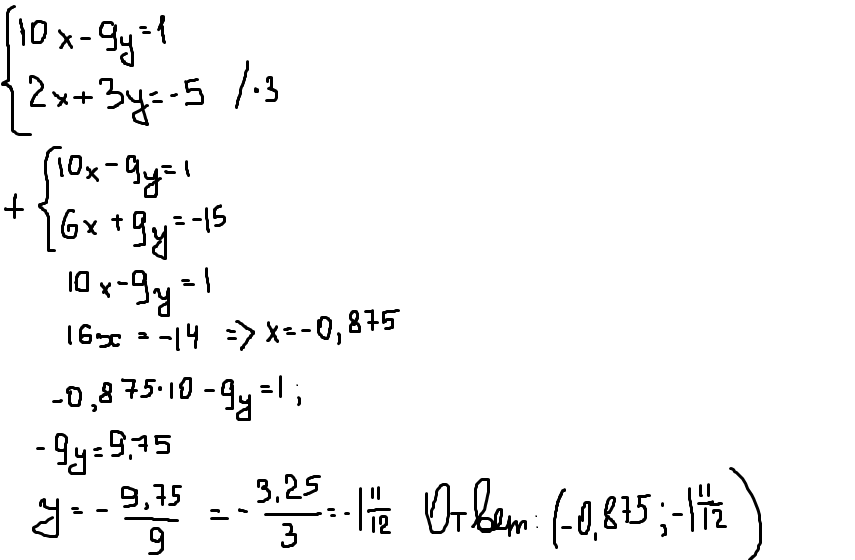 10x-9y=1
2x+3y=-5 /·3
+ 10x-9y=1
6x+9y=-15
10x-9y=1
16x=-14 => x=-0,875
-0,875·10-9y=1;
-9y=9.75
y=-9,75/9=-3,25/3=-1 11/12 Ответ: (-0,875;-1 11/12)